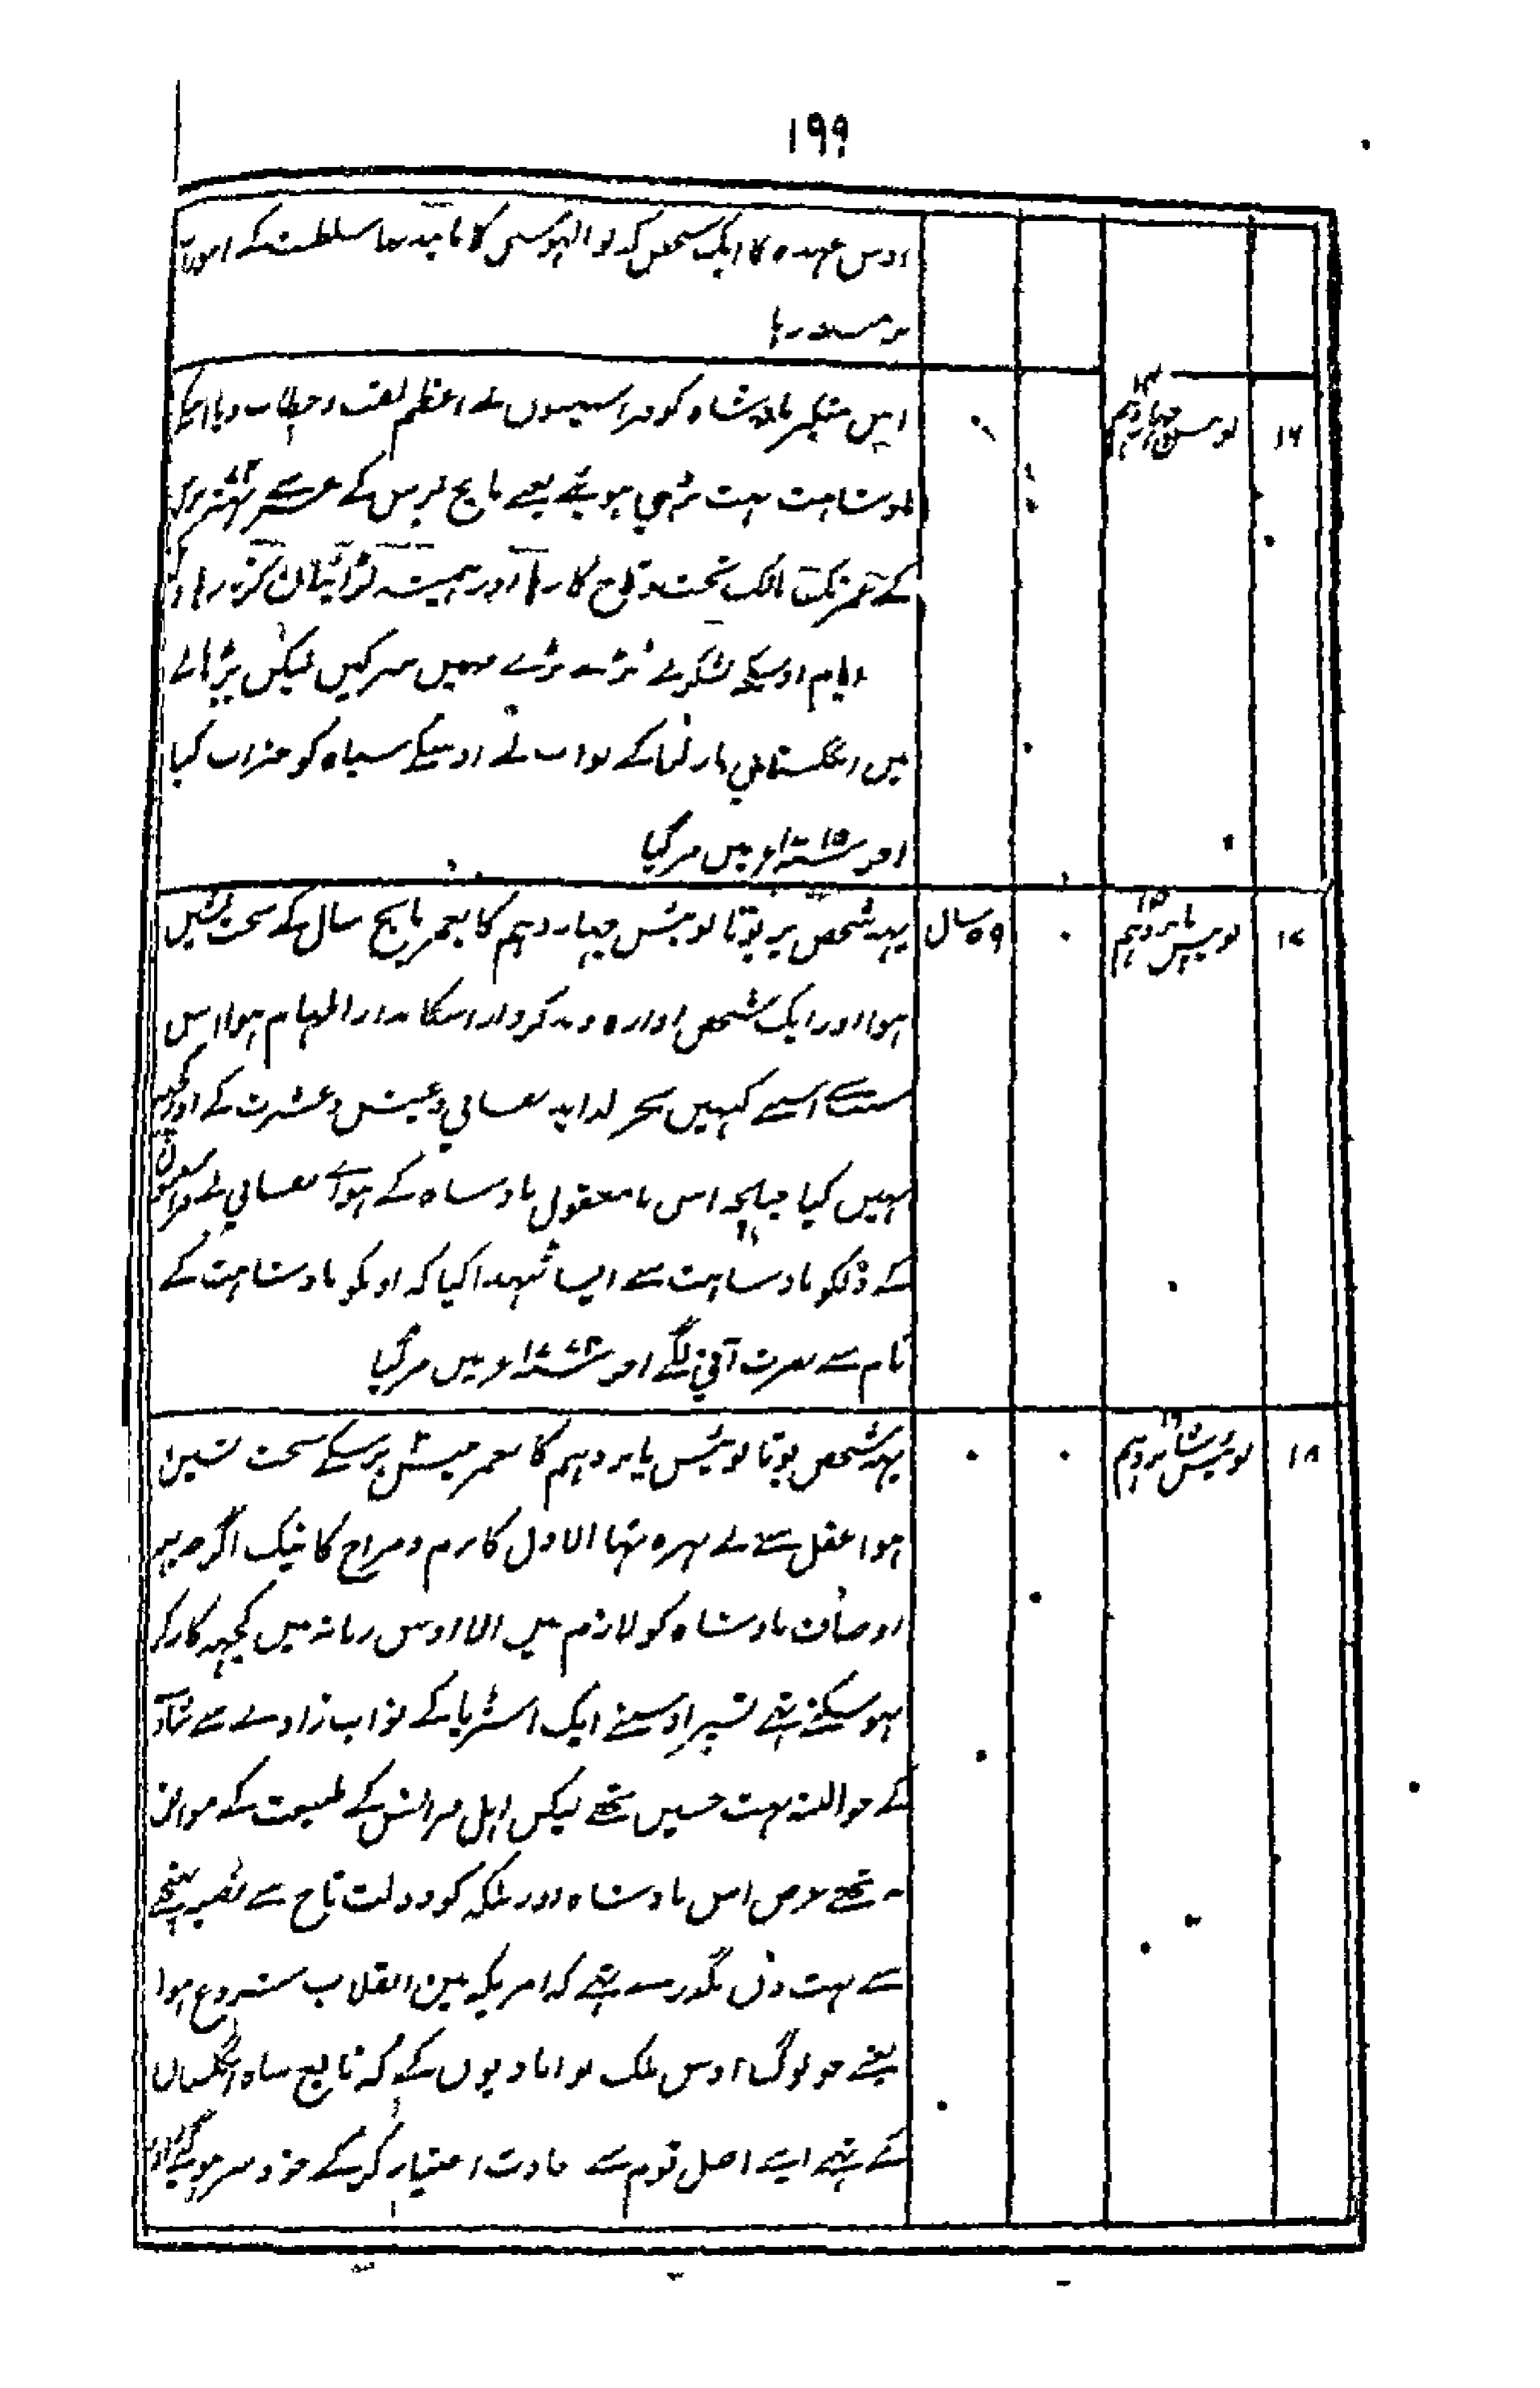 ۱۹۹
اوس عہدہ کا ایک شخص کہ بوالہوسی کا تھا سلطنت کے امورات
رہا
۱۶
لویس چہاردہم ۱۴
اس متکبر بادشاہ کو فراسیسوں نے اعظم لقب و خطاب دیا
بادشاہت بہت بڑی ہوئی یعنے پانچ برس کے عمر سے برس
کے عمر تک مالک تخت و تاج کا رہا اور ہمیشہ لڑائیاں کرتا رہا
ایام اوسیکے لشکر نے بڑے بڑے مہمیں سر کیں لیکن بڑہاپے
میں انگلستانی مارلبرا کے نواب نے اوسکے سپاہ کو خراب کیا
اور ۱۷۱۵ء میں مر گیا
۱۷
لویس پانزدہم ۱۵
۵۹ سال
یہہ شخص پر پوتا لویئس چہاردہم کا بعمر پانچ سال کے تخت نشیں
ہوا اور ایک شخص اوارہ و بد کردار اسکا مدار المہام ہوا اس
سبب سے اسنے کہیں بجز لذاید نفسانی و عیش و عشرت کے اور کچہہ
نہیں کیا چنانچہ اس نامعقول بادشاہ کے ہواے نفسانی نے
کے دلکو بادشاہت سے ایسا ٹہنڈا کیا کہ اونکو بادشاہت کے
نام سے نفرت آنی لگے اور ۱۷۷۴ء میں مر گیا
۱۸
لویئس شانزدہم ۱۶
یہہ شخص پوتا لویئس پانزدہم کا بعمر بیش برسکے تخت نشین
ہوا عقل سے بے بہرہ تہا الا دل کا نرم و مزاج کا نیک اگرچہ یہہ
اوصاف بادشاہ کو لازم ہیں الا اوس زمانہ میں کچہہ کارگر
نہو سکتے تہے تسپر اوسنے ایک اسٹریا کے نواب زادے سے شادی
کے جو البتہ بہت حسیں تھے لیکں اہل فرانس کے طبیعت کے موافق
نہ تھے غرض اس بادشاہ اور ملکہ کو دولت تاج سے
سے بہت دن نگذرے تہے کہ امریکہ میں انقلاب شروع ہوا
یعنے جو لوگ اوس ملک نوابادیوں کے کہ تابع شاہ انگلستان
کے تہے اپنے اصل قوم سے عادت اختیار کر کے خود سر ہو گئے اور